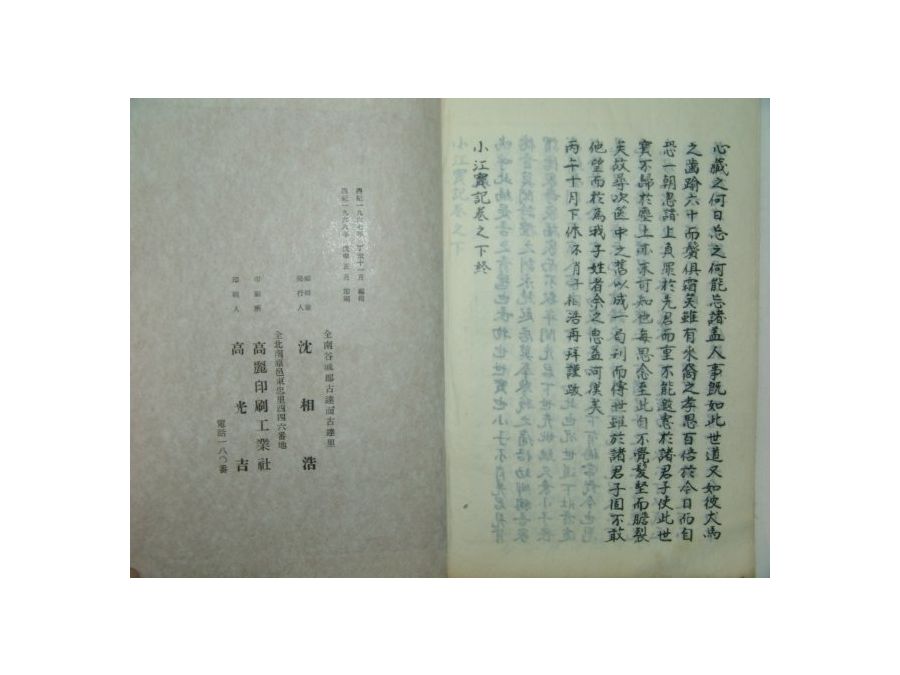 心藏之何日忘之何能忘諸盖人事旣如此世道又如彼犬馬
之齒踰六十而鬢俱霜矣雖有來裔之孝思百倍於今日而自
恐一朝溘諸上負罪於先君而重不能徵憲於諸君子使此世
實不歸於塵土亦未可知也每思念至此自不覺髮竪而膽裂
矣故尋吹篋中之舊以成一局刊而傳世雖於諸君子固不敢
他望而於爲我子姓者余之思盖何僕矣
丙午十月下休不肖子相浩再拜謹跋
小江實記卷之下終
西紀一九六七年 丁未十一月 編輯
西紀一九六八年 戊申五月 印刷
全南谷城郡古達面古達里
編輯兼
發行人 沈相浩
全北南原邑東忠里四四六番地
印刷所 高麗印刷工業社
印刷人 高光吉
電話一八〇番